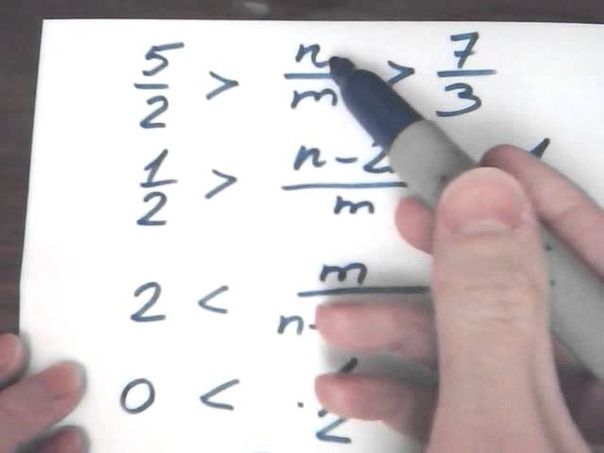 5/2 > n/m > 7/3
1/2 > n-2 /m
2 < m/n-
0 <